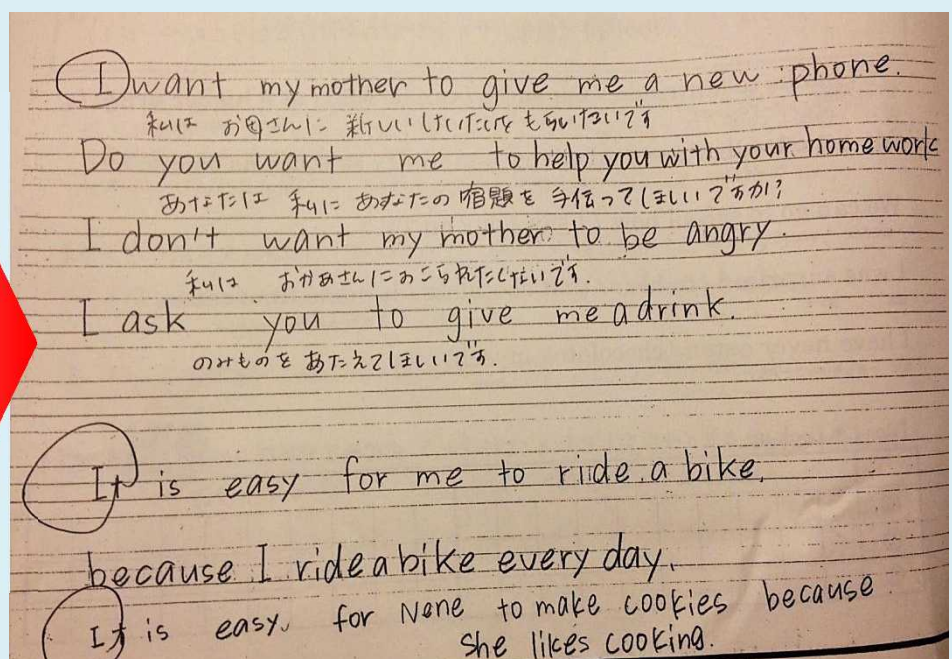 I want my mother to give me a new phone.
私は お母さんに 新しいけいたいを もらいたいです
Do you want me to help you with your home work
あなたは 私に あなたの 宿題を 手伝ってほしいですか?
I don't want my mother to be angry.
私は おかあさんにおこられたくないです.
I ask you to give me a drink.
のみものを あたえてほしいです.
It is easy for me to ride a bike.
because I ride a bike every day.
It is easy. for Nene to make cookies because
she likes cooking.